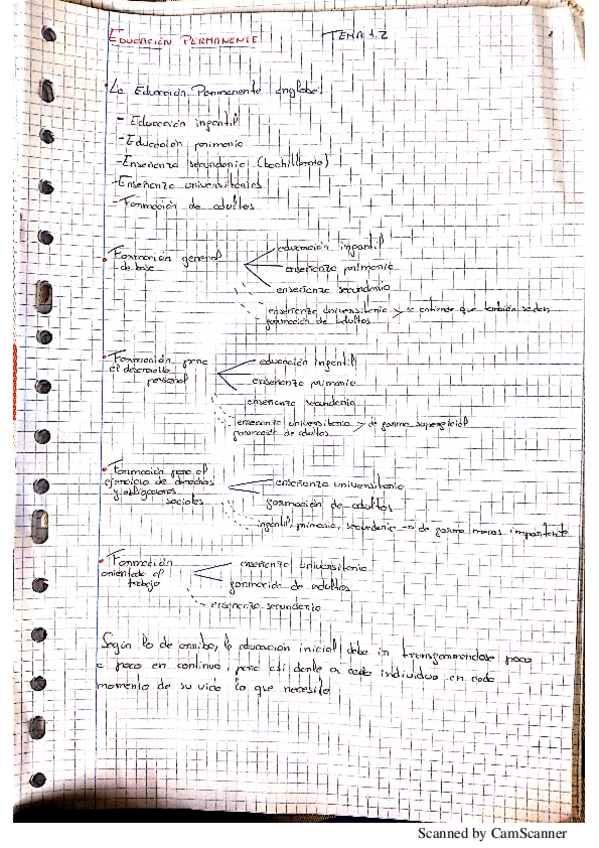 EDUCACIÓN PERMANENTE TEMA 1.2
• La Educación Permanente engloba:
- Educación infantil
- Educación primaria
- Enseñanza secundaria (bachillerato)
- Enseñanza universitarias
- Formación de adultos
• Formación general
de base
educación infantil
enseñanza primaria
enseñanza secundaria
enseñanza universitaria > se entiende que también se den
formación de adultos
• Formación para
el desarrollo
personal
educación infantil
enseñanza primaria
enseñanza secundaria
enseñanza universitaria > de forma superficial
formación de adultos
• Formación para el
ejercicio de derechos
y obligaciones
sociales
enseñanza universitaria
formación de adultos
infantil, primaria, secundaria → de forma menos importante
• Formación
orientada al
trabajo
enseñanza universitaria
formación de adultos
enseñanza secundaria
Según lo de arriba, la educación inicial debe ir transformándose poco
a poco en continua, para así darle a cada individuo en cada
momento de su vida lo que necesite
Scanned by CamScanner